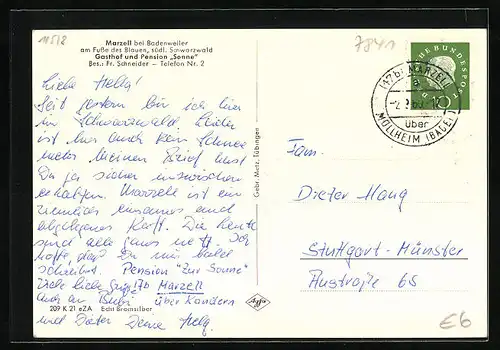 11512
7841
Marzell bei Badenweiler
am Fuße des Blauen, südl. Schwarzwald
Gasthof und Pension „Sonne"
Bes.: Fr. Schneider – Telefon Nr. 2
Liebe Helga!
Seit gestern bin ich hier
im Schwarzwald. Leider
ist hier auch kein Schnee
mehr. Meinen Brief hast
Du ja sicher inzwischen
erhalten. Marzell ist ein
ziemlich einsames und
abgelegenes Kaff. Die Leute
sind alle ganz nett. Ich
hoffe, daß Du mir bald
schreibst. Pension "Zur Sonne"
Viele liebe Grüße 17b Marzell
auch an über Kandern
und Dieter Deine Helg.
209 K 21 eZA Echt Bromsilber
Gebr. Metz, Tübingen
Agfa
DEUTSCHE BUNDESPOST
10
(17b) MARZELL
a
über
MÜLLHEIM (BADEN)
Fam.
Dieter Mang
Stuttgart-Münster
Austraße 65
€6